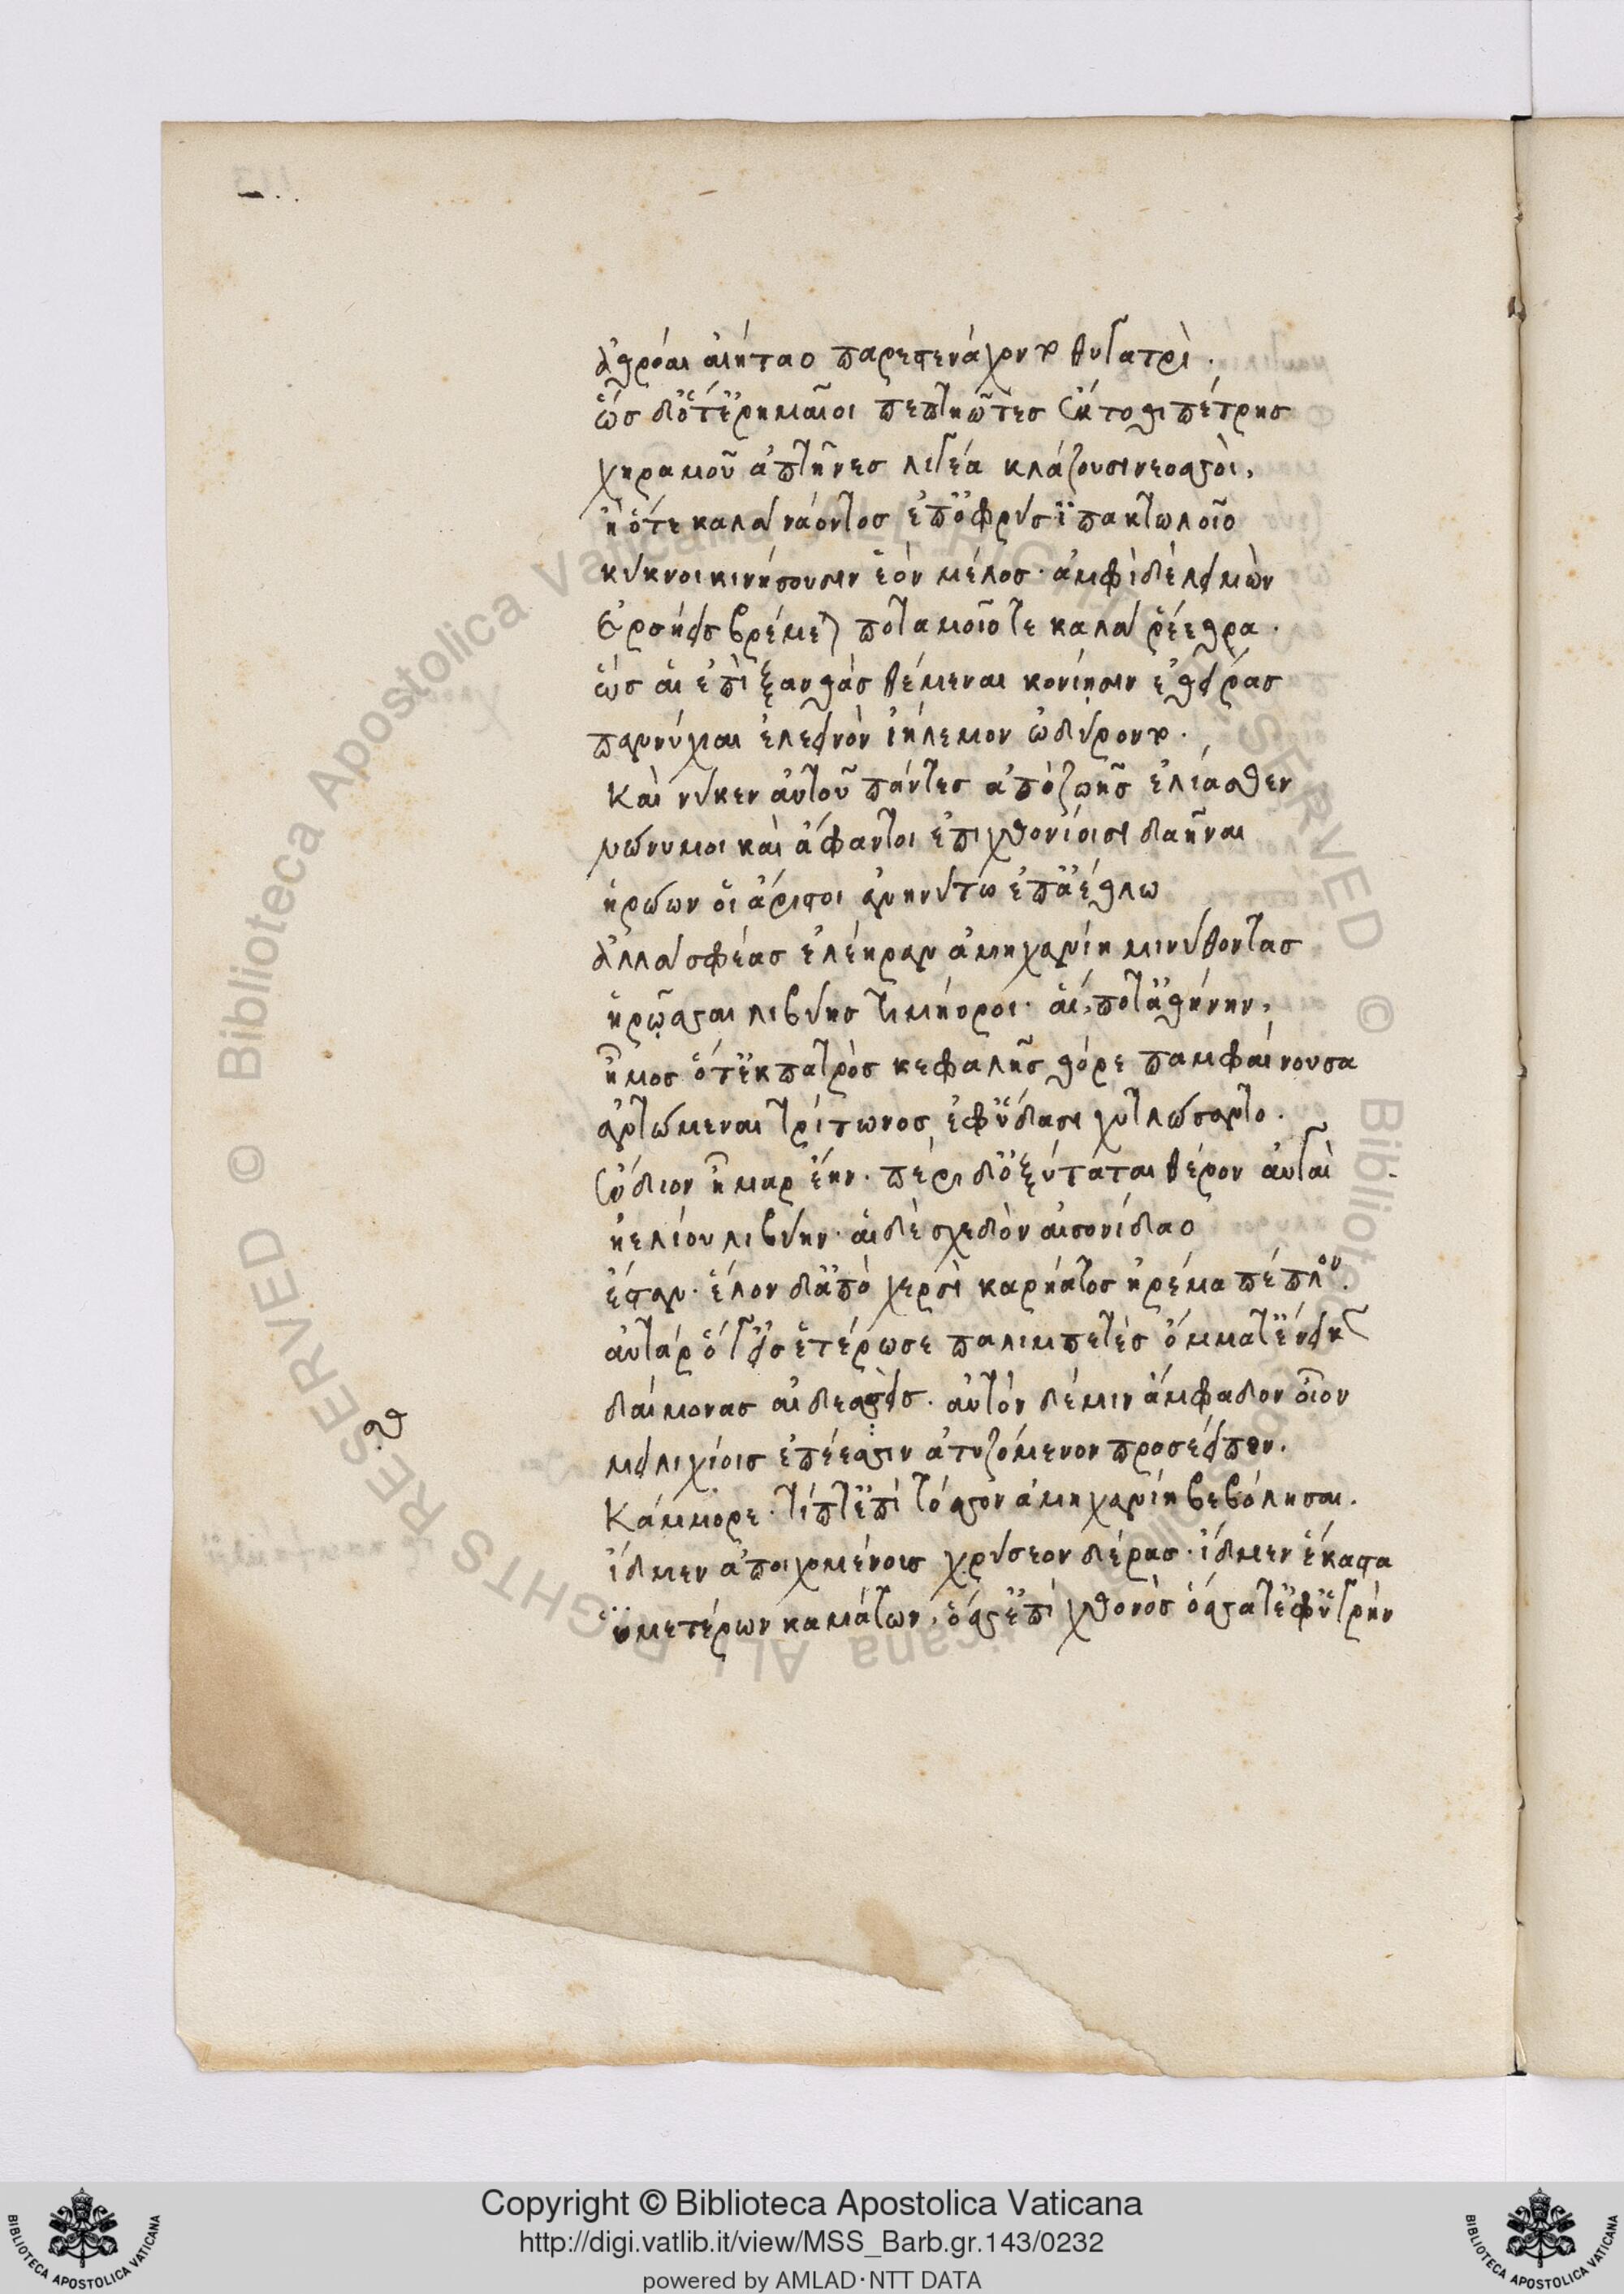 ἀθρόαι αἰήταο παρεστενάχοντο θυγατρὶ.
ὡς δ' ὅτ' ἐρημαῖοι πεπτηῶτες ἔκτοθι πέτρης
χηραμοῦ ἀπτῆνες λιγέα κλάζουσι νεοσσοὶ,
ἢ ὅτε καλὰ νάοντος ἐπ' ὀφρύσι πακτωλοῖο
κύκνοι κινήσουσιν ἑὸν μέλος· ἀμφὶ δὲ λειμὼν
ἐρσήεις βρέμεται ποταμοῖό τε καλὰ ῥέεθρα.
ὡς αἱ ἐπὶ ξανθὰς θέμεναι κονίῃσιν ἐθείρας
παννύχιαι ἐλεεινὸν ἰήλεμον ὠδύροντο.
Καὶ νύ κεν αὐτοῦ πάντες ἀπὸ ζωῆς ἐλίασθεν
νώνυμοι καὶ ἄφαντοι ἐπιχθονίοισι δαῆναι
ἡρώων οἱ ἄριστοι ἀνηνύστω ἐπ' ἀέθλω
ἀλλά σφέας ἐλέηραν ἀμηχανίη μινύθοντας
ἡρῷσσαι λιβύης τιμήοροι· αἵ ποτ' ἀθήνην,
ἦμος ὅτ' ἐκ πατρὸς κεφαλῆς θόρε παμφαίνουσα
ἀντώμεναι τρίτωνος ἐφ' ὕδασι χυτλώσαντο.
ἔνδιον ἦμαρ ἔην· πέρι δ' ὀξύταται θέρον αὐγαὶ
ἠελίου λιβύην· αἱ δὲ σχεδὸν αἰσονίδαο
ἔσταν· ἕλον δ' ἀπὸ χερσὶ καρήατος ἠρέμα πέπλον.
αὐτὰρ ὅ γ' εἰς ἑτέρωσε παλιμπετὲς ὄμματ' ἔνεικε
δαίμονας αἰδεσθείς. αὐτὸν δέ μιν ἄμφαδον οἶον
μειλιχίοις ἐπέεσσιν ἀτυζόμενον προσέειπον.
Κάμμορε· τίπτ' ἐπὶ τόσσον ἀμηχανίη βεβόλησαι.
ἴδμεν ἀποιχομένους χρύσεον δέρας· ἴδμεν ἕκαστα
ὑμετέρων καμάτων, ὅσσ' ἐπὶ χθονὸς ὅσσα τ' ἐφ' ὑγρὴν
Copyright © Biblioteca Apostolica Vaticana
http://digi.vatlib.it/view/MSS_Barb.gr.143/0232
powered by AMLAD·NTT DATA